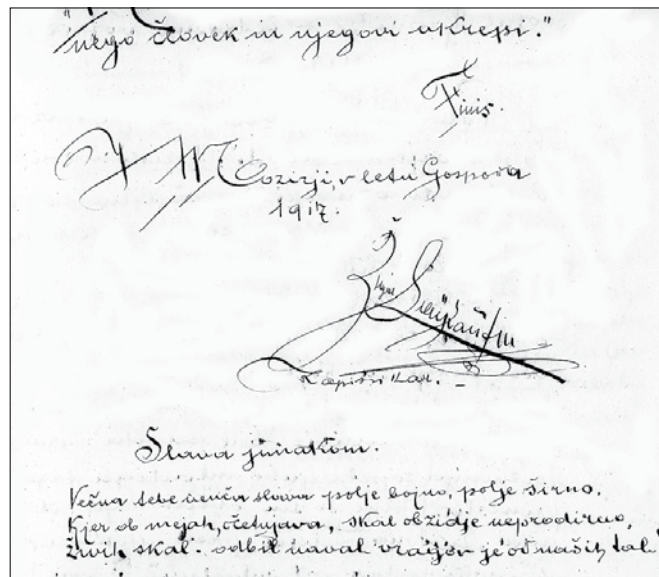 nego človek in njegovi ukrepi."
Finis.
V Mozirji, v letu Gospoda
1917.
Slava junakom.
Večna tebe venča slava polje bojno, polje širno.
Kjer ob mejah, očetnjava, skal obzidje neprodirno,
živih skal. odbil naval vragov je od naših tal